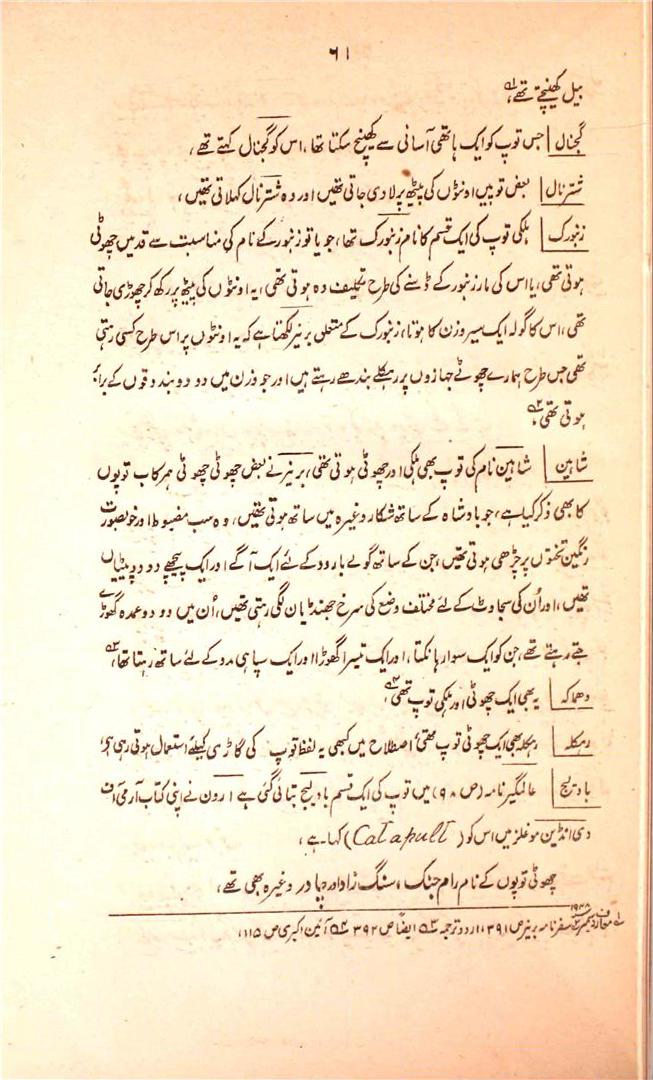 ۶۱
بیل کھینچتے تھے، لہ
گجنال | جس توپ کو ایک ہاتھی آسانی سے کھینچ سکتا تھا، اس کو گجنال کہتے تھے،
شترنال | بعض توپیں اونٹوں کی پیٹھ پر لادی جاتی تھیں اور وہ شترنال کہلاتی تھیں،
زنبورک | ہلکی توپ کی ایک قسم کا نام زنبورک تھا، جو یا تو زنبور کے نام کی مناسبت سے قد میں چھوٹی
ہوتی تھی، یا اس کی مار زنبور کے ڈسنے کی طرح تکلیف دہ ہوتی تھی، یہ اونٹوں کی پیٹھ پر رکھ کر چھوڑی جاتی
تھی، اس کا گولہ ایک سیر وزن کا ہوتا، زنبورک کے متعلق برنیر لکھتا ہے کہ یہ اونٹوں پر اس طرح کسی رہتی
تھی جس طرح ہمارے چھوٹے جہازوں پر رہکلے بندھے رہتے ہیں اور جو وزن میں دو دو بندوقوں کے برابر
ہوتی تھی، ۲ہ
شاہین | شاہین نام کی توپ بھی ہلکی اور چھوٹی ہوتی تھی، برنیر نے بعض چھوٹی چھوٹی ہمرکاب توپوں
کا بھی ذکر کیا ہے، جو بادشاہ کے ساتھ شکار وغیرہ میں ساتھ ہوتی تھیں، وہ سب مضبوط اور خوبصورت
رنگین تختوں پر چڑھی ہوتی تھیں، جن کے ساتھ گولے بارود کے لئے ایک آگے اور ایک پیچھے دو دو پیٹیاں
تھیں، اور اُن کی سجاوٹ کے لئے مختلف وضع کی سرخ جھنڈیاں لگی رہتی تھیں، اُن میں دو دو عمدہ گھوڑے
جتے رہتے تھے، جن کو ایک سوار ہانکتا، اور ایک تیسرا گھوڑا اور ایک سپاہی مدد کے لئے ساتھ رہتا تھا، ۳ہ
دھماکہ | یہ بھی ایک چھوٹی اور ہلکی توپ تھی، ۴ہ
رہکلہ | رہکلہ بھی ایک چھوٹی توپ تھی، اصطلاح میں کبھی یہ لفظ توپ کی گاڑی کیلئے استعمال ہوتی رہی ہے،
بادلیج | عالمگیر نامہ (ص ۹۸) میں توپ کی ایک قسم بادلیج بتائی گئی ہے ارون نے اپنی کتاب آرمی آف
دی انڈین موغلز میں اس کو (Catapult) کہا ہے،
چھوٹی توپوں کے نام رام جنگ، سنگ زاد اور بہادر وغیرہ بھی تھے،
لہ معارف دسمبر ۱۹۴۸ ۲ہ سفرنامہ برنیر ص ۳۹۱، اردو ترجمہ ۳ہ ایضاً ص ۳۹۲ ۴ہ آئین اکبری ص ۱۱۵،